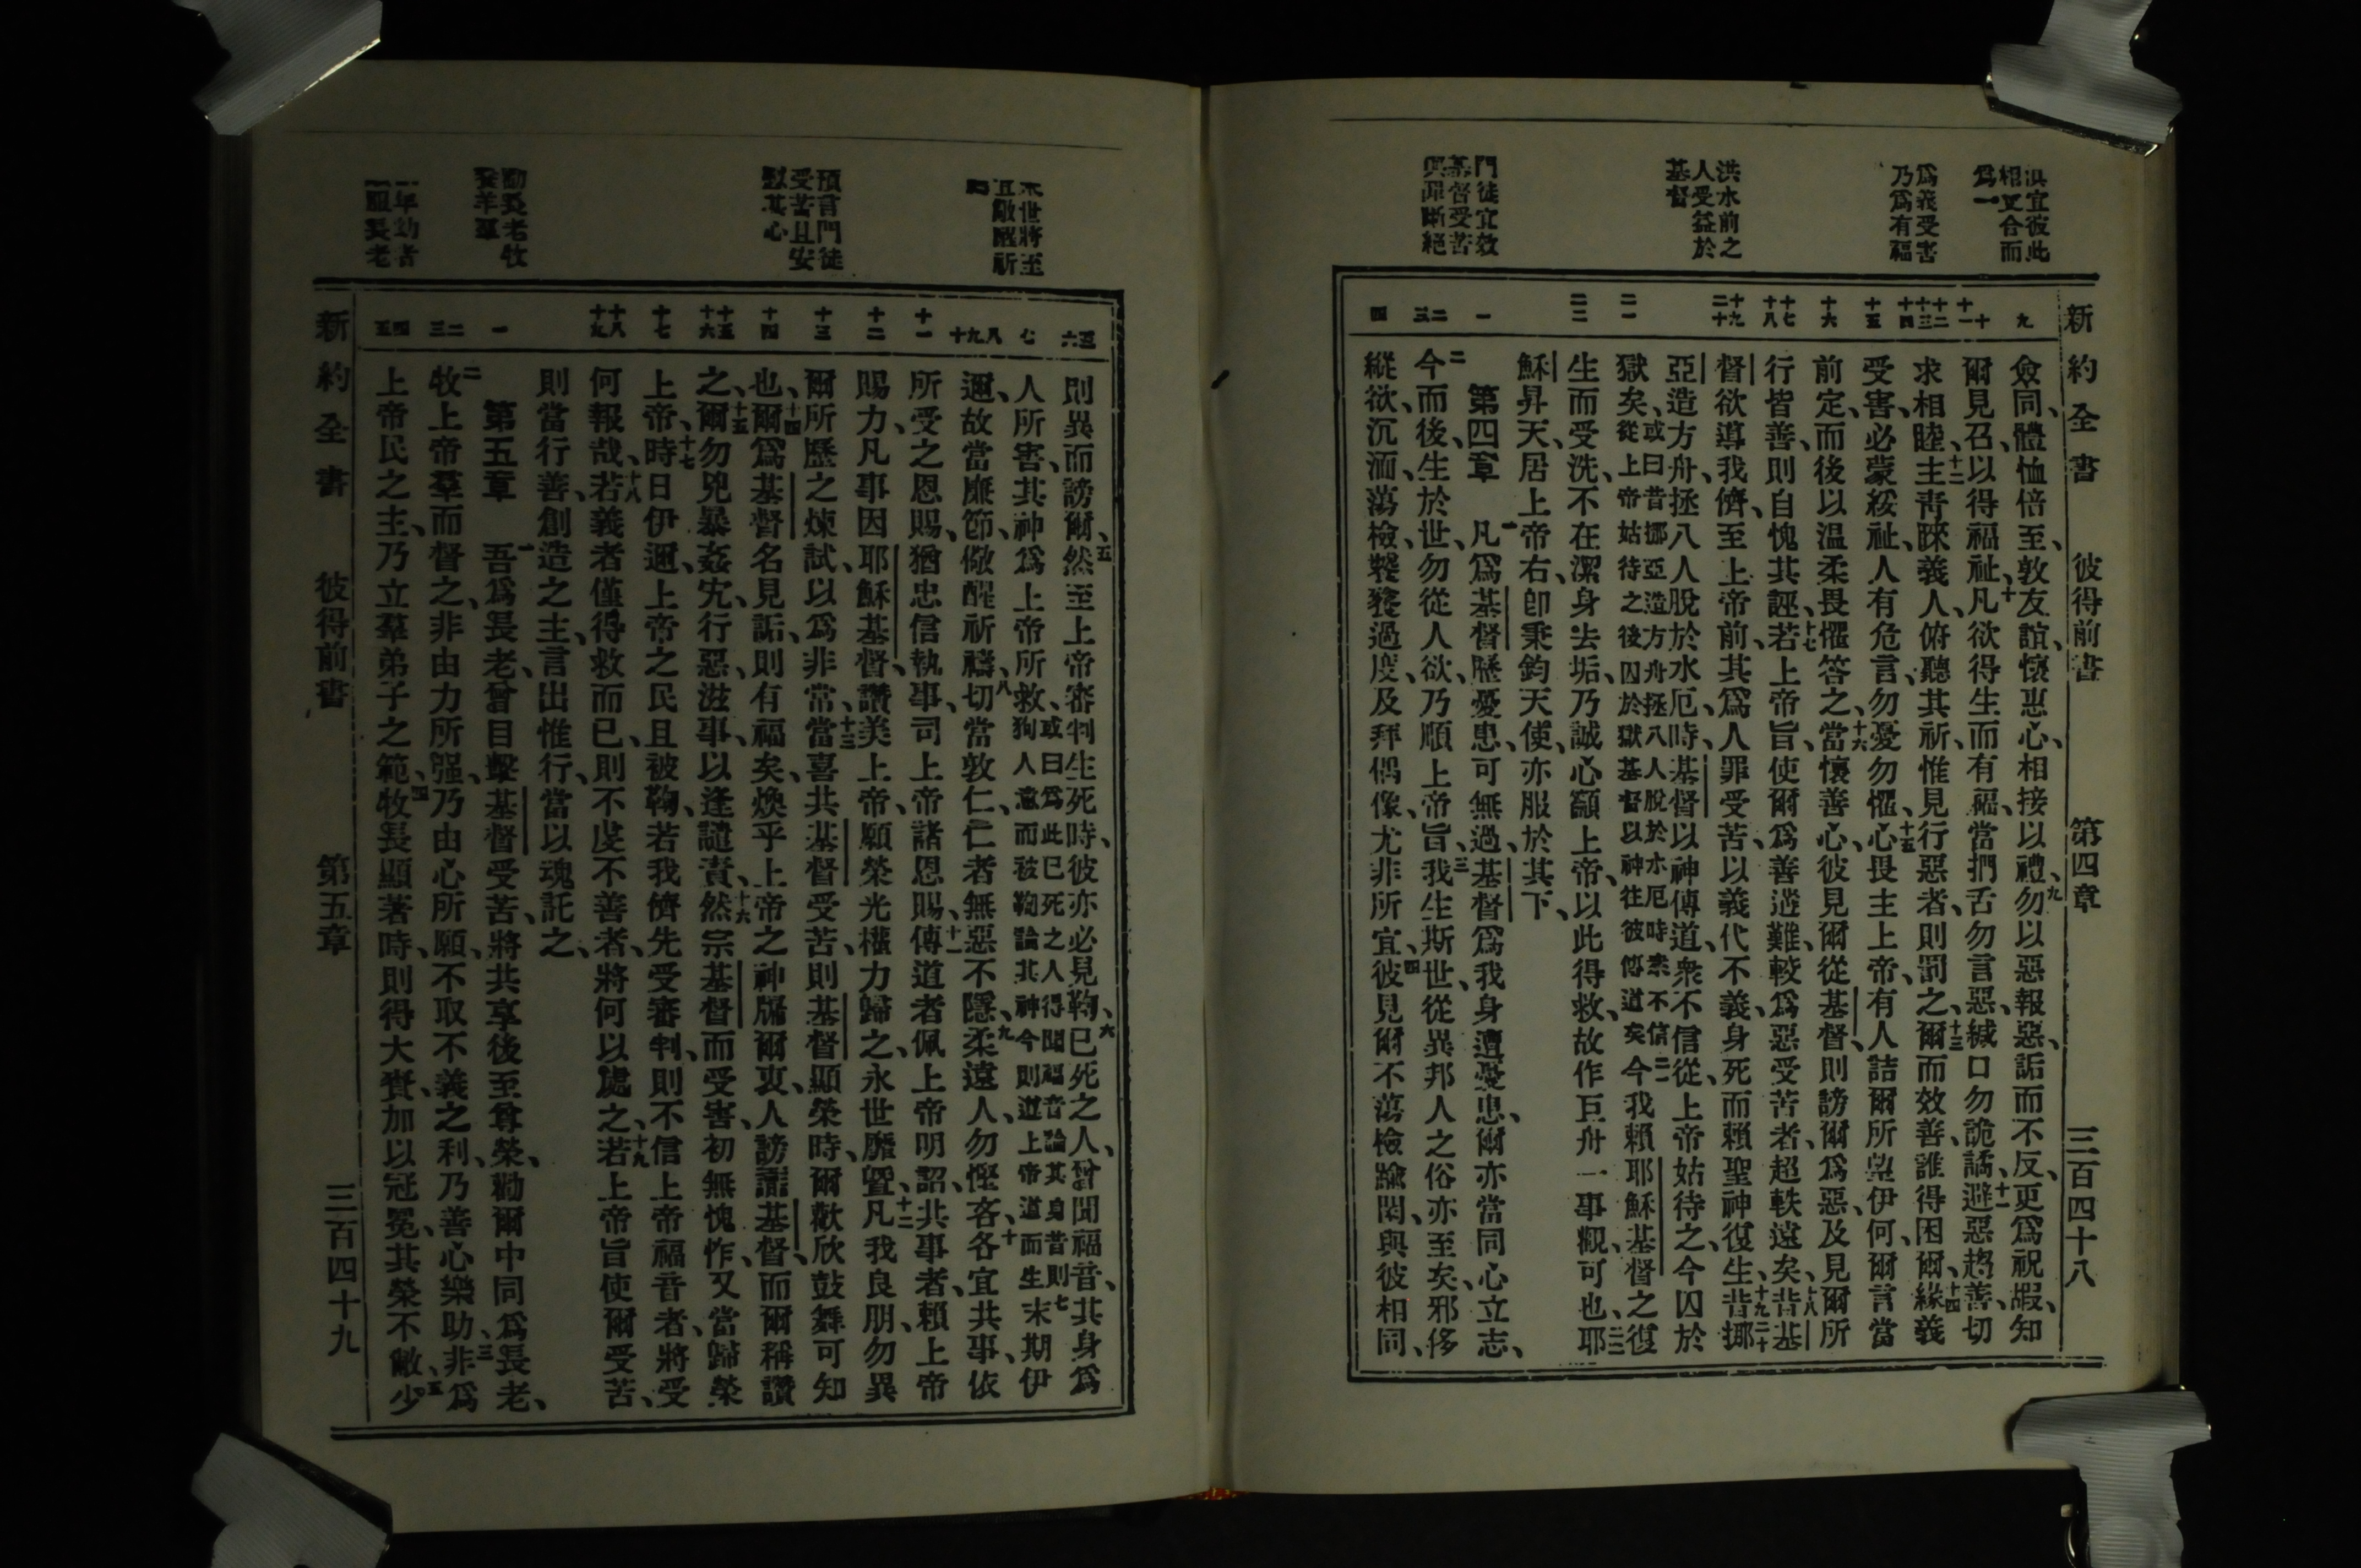 新約全書 彼得前書 第四章 三百四十八
俱宜彼此
相交合而
爲一
爲義受害
乃爲有福
洪水前之
人受益於
基督
門徒宜效
基督受苦
與罪斷絕
九
十
十一
十二
十三
十四
十五
十六
十七
十八
十九
二十
二一
二二
一
二
三
四
僉同、體恤倍至、敦友誼、懷惠心、相接以禮、九勿以惡報惡、詬而不反、更爲祝嘏、知
爾見召、以得福祉、十凡欲得生而有福、當捫舌勿言惡、緘口勿詭譎、十一避惡趨善、切
求相睦、十二主靑睞義人、俯聽其祈、惟見行惡者、則罰之、十三爾而效善、誰得困爾、十四緣義
受害、必蒙綏祉、人有危言、勿憂勿懼、十五心畏主上帝、有人詰爾所望伊何、爾言當
前定、而後以温柔畏懼答之、十六當懷善心、彼見爾從基督、則謗爾爲惡、及見爾所
行皆善、則自愧其誣、十七若上帝旨、使爾爲善遘難、較爲惡受苦者、超軼遠矣、十八昔基
督欲導我儕、至上帝前、其爲人罪受苦、以義代不義、身死而賴聖神復生、十九二十昔挪
亞造方舟、拯八人脫於水厄時、基督以神傳道、衆不信從、上帝姑待之、今囚於
獄矣、或曰昔挪亞造方舟拯八人脫於水厄時衆不信從上帝姑待之後囚於獄基督以神往彼傳道矣二一今我賴耶穌基督之復
生而受洗、不在潔身去垢、乃誠心籲上帝、以此得救、故作巨舟一事觀、可也、二二耶
穌昇天、居上帝右、卽秉鈞天使、亦服於其下、
第四章 一凡爲基督歷憂患、可無過、基督爲我身遭憂患、爾亦當同心立志、
二今而後、生於世、勿從人欲、乃順上帝旨、三我生斯世、從異邦人之俗、亦至矣、邪侈
縱欲、沉湎、蕩檢、饕餮過度、及拜偶像、尤非所宜、四彼見爾不蕩檢踰閑、與彼相同、
末世將至
宜儆醒祈
預言門徒
受苦且安
慰其心
勸長老牧
養羊羣
年幼者
服長老
五
六
七
八
九
十
十一
十二
十三
十四
十五
十六
十七
十八
十九
一
二
三
四
五
則異而謗爾、五然至上帝審判生死時、彼亦必見鞫、六已死之人、曾聞福音、其身爲
人所害、其神爲上帝所救、或曰爲此已死之人得聞福音論其身昔則狥人意而被鞫論其神今則遵上帝道而生七末期伊
邇、故當廉節、儆醒祈禱、八切當敦仁、仁者無惡不隱、九柔遠人、勿慳吝、十各宜共事、依
所受之恩賜、猶忠信執事、司上帝諸恩賜、十一傳道者佩上帝明詔、共事者、賴上帝
賜力、凡事因耶穌基督、讚美上帝、願榮光權力歸之、永世靡曁、十二凡我良朋、勿異
爾所歷之煉試、以爲非常、十三當喜共基督受苦、則基督顯榮時、爾歡欣鼓舞可知
也、十四爾爲基督名見詬、則有福矣、煥乎上帝之神牖爾衷、人謗讟基督、而爾稱讚
之、十五爾勿兇暴姦宄、行惡滋事、以逢譴責、十六然宗基督而受害、初無愧怍、又當歸榮
上帝、十七時日伊邇、上帝之民且被鞫、若我儕先受審判、則不信上帝福音者、將受
何報哉、十八若義者僅得救而已、則不虔不善者、將何以處之、十九若上帝旨使爾受苦、
則當行善、創造之主、言出惟行、當以魂託之、
第五章 一吾爲長老、曾目擊基督受苦、將共享後至尊榮、勸爾中同爲長老、
二牧上帝羣而督之、非由力所强、乃由心所願、不取不義之利、乃善心樂助、三非爲
上帝民之主、乃立羣弟子之範、四牧長顯著時、則得大賚、加以冠冕、其榮不敝、五少
新約全書 彼得前書 第五章 三百四十九